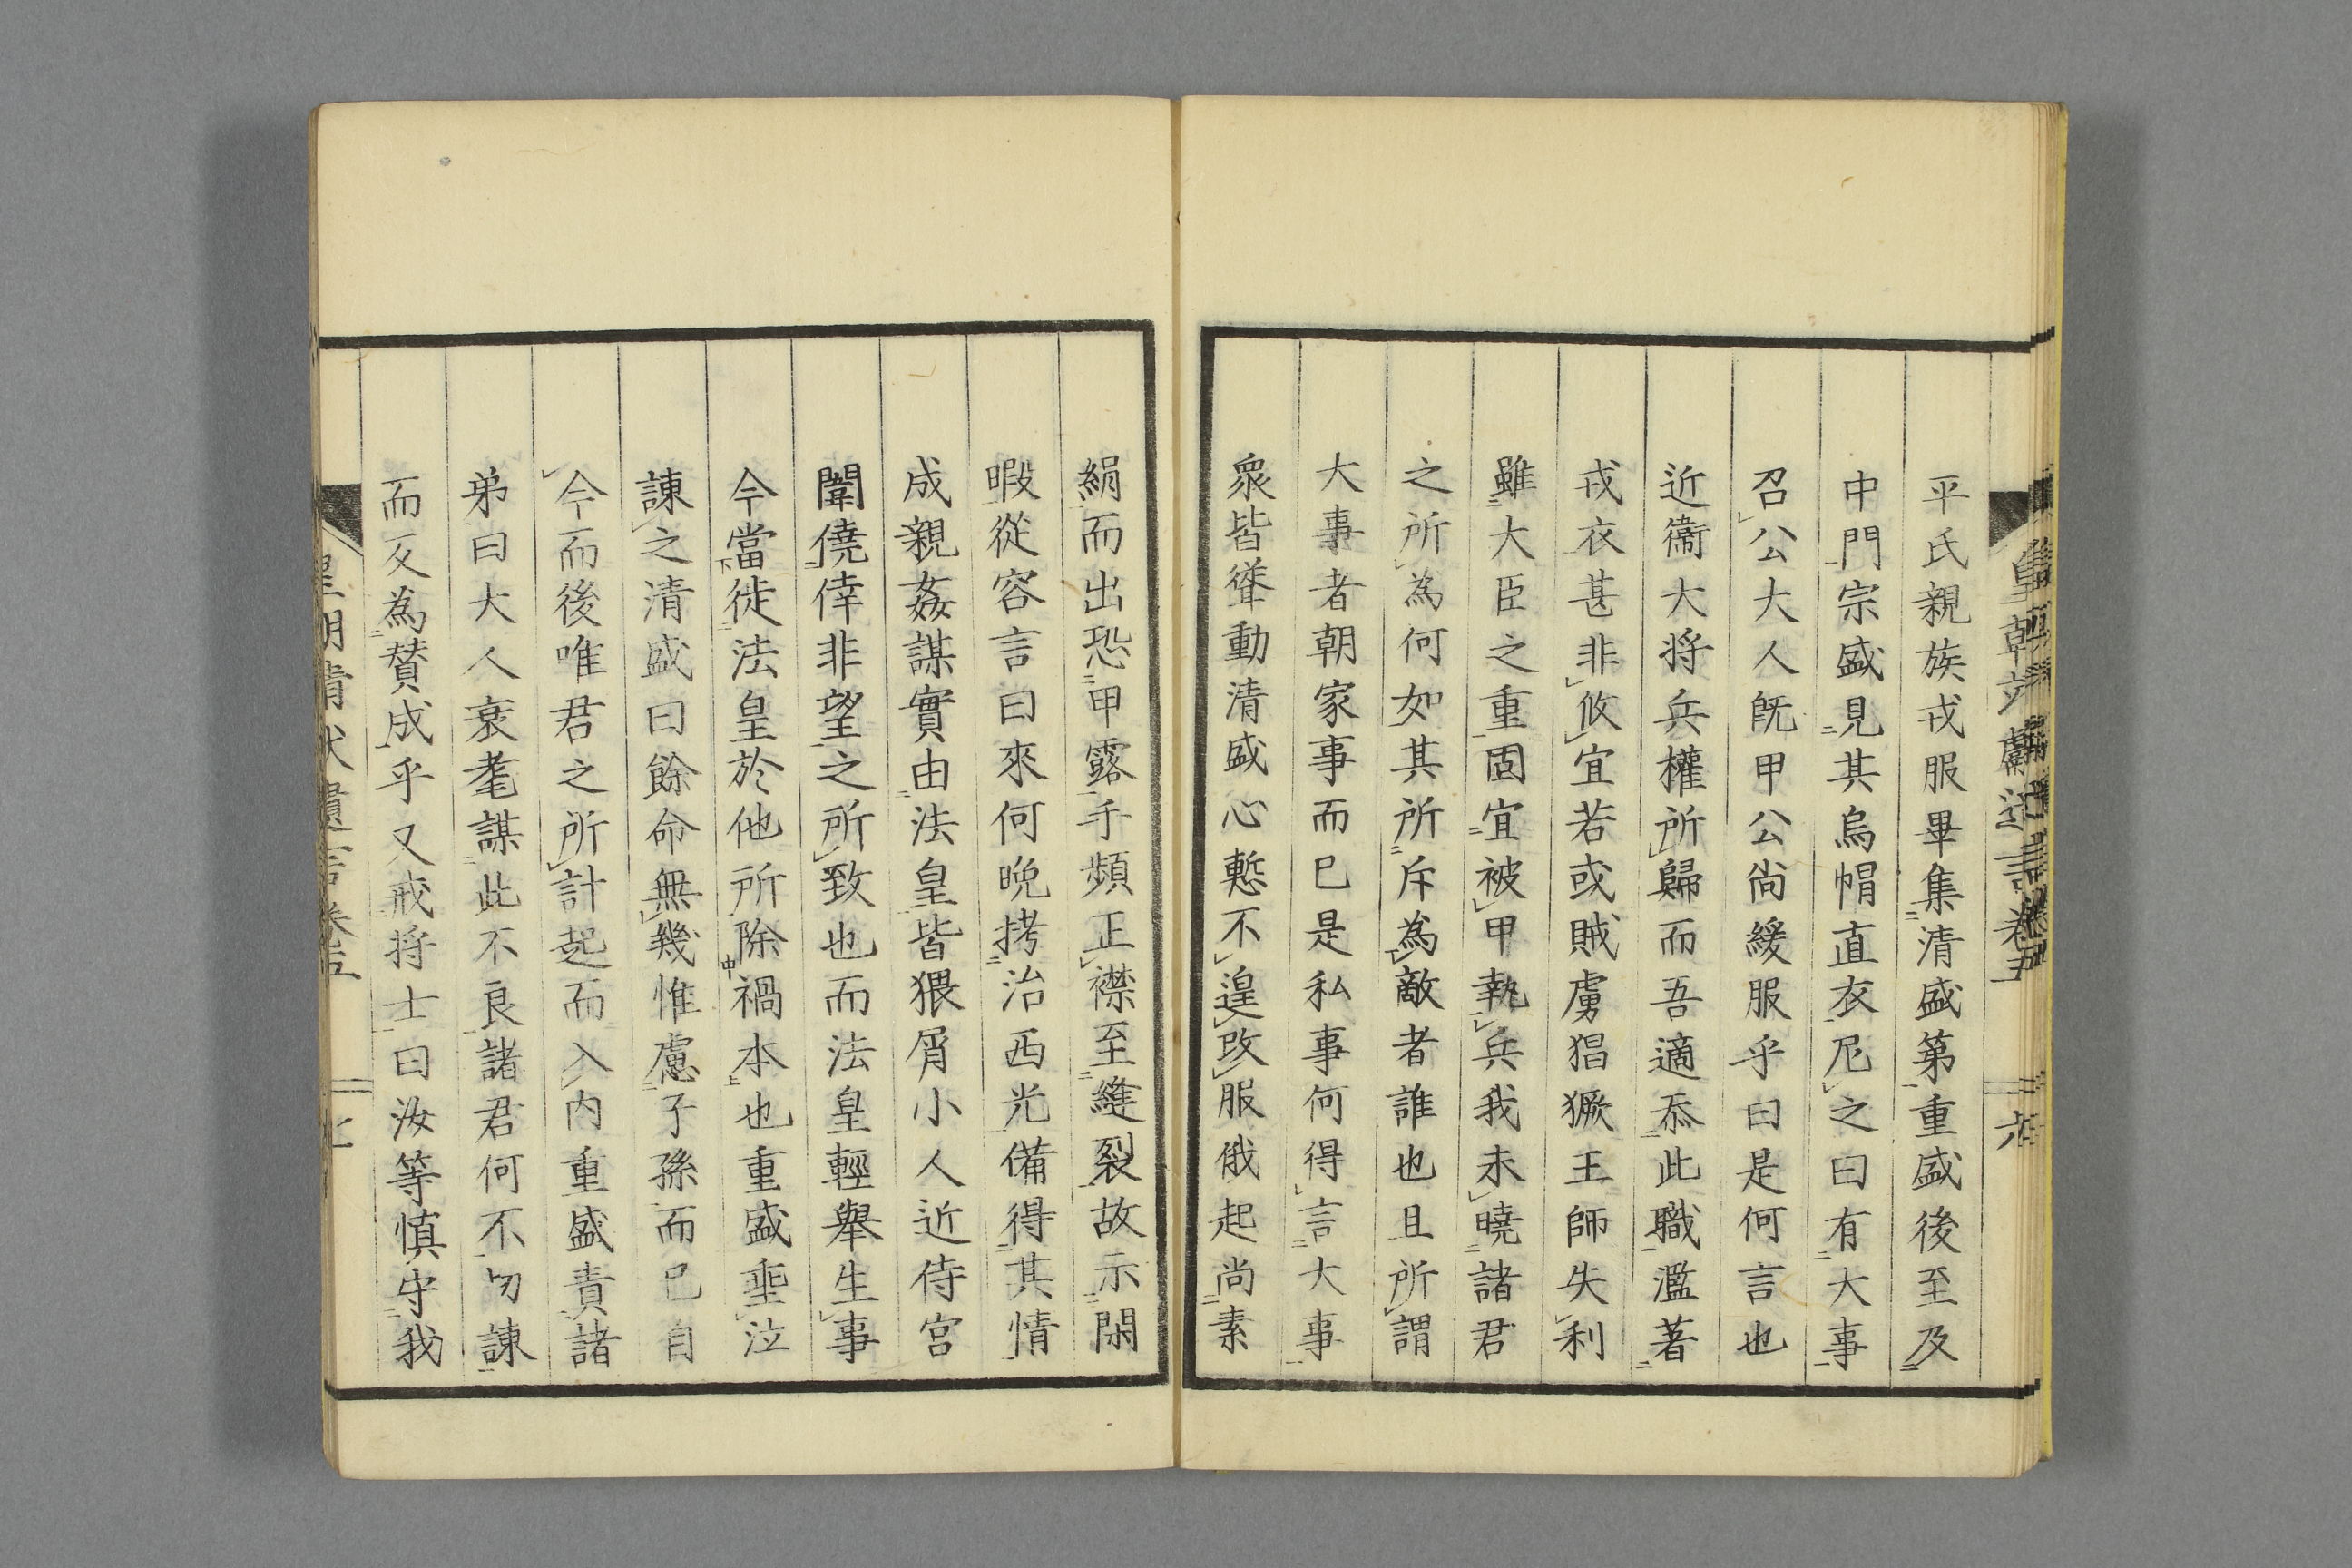 平氏親族戎服畢集清盛第重盛後至及
中門宗盛見其烏帽直衣尼之曰有大事
召公大人既甲公尙緩服乎曰是何言也
近衞大将兵權所歸而吾適忝此職濫著
戎衣甚非攸宜若或賊虜猖獗王師失利
雖大臣之重固宜被甲執兵我未曉諸君
之所為何如其所斥為敵者誰也且所謂
大事者朝家事而已是私事何得言大事
衆皆聳動清盛心慙不遑改服俄起尚素
絹而出恐甲露手頻正襟至縫裂故示閑
暇從容言曰來何晩拷治西光備得其情
成親姦謀實由法皇皆猥屑小人近侍宮
闈僥倖非望之所致也而法皇輕舉生事
今當徙法皇於他所除禍本也重盛垂泣
諫之清盛曰餘命無幾惟慮子孫而已自
今而後唯君之所計起而入內重盛責諸
弟曰大人衰耄謀此不良諸君何不匃諫
而反為賛成乎又戒将士曰汝等慎守我